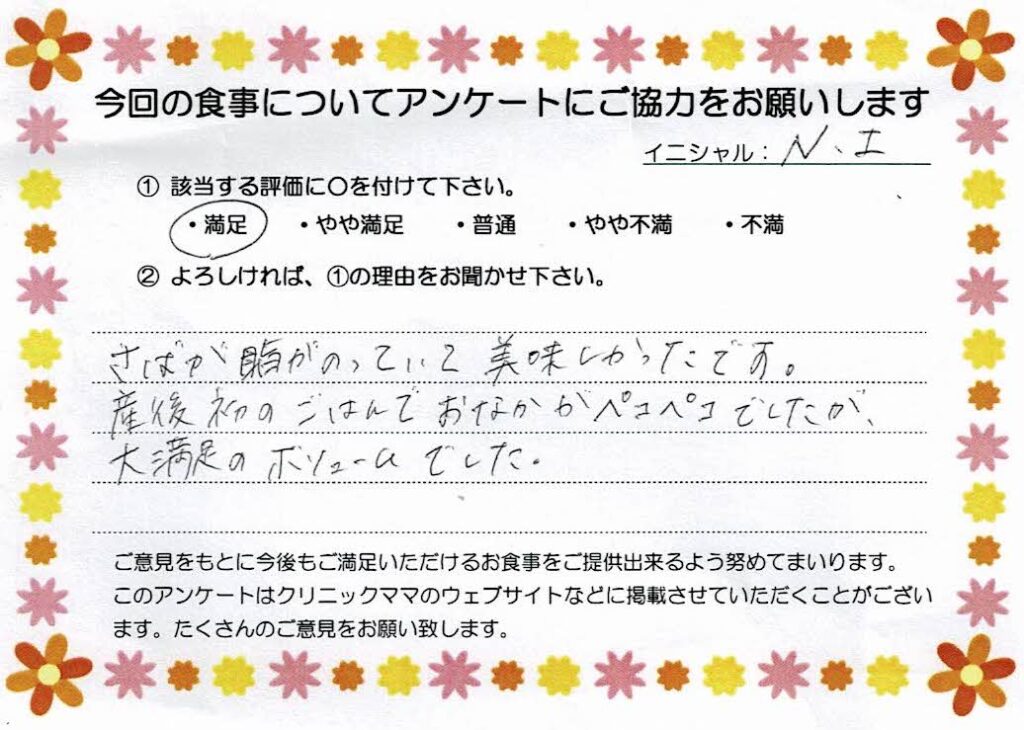 今回の食事についてアンケートにご協力をお願いします
イニシャル：N、I
① 該当する評価に〇を付けて下さい。
・満足 ・やや満足 ・普通 ・やや不満 ・不満
② よろしければ、①の理由をお聞かせ下さい。
さばが脂がのっていて美味しかったです。
産後初のごはんでおなかがペコペコでしたが、
大満足のボリュームでした。
ご意見をもとに今後もご満足いただけるお食事をご提供出来るよう努めてまいります。
このアンケートはクリニックママのウェブサイトなどに掲載させていただくことがござい
ます。たくさんのご意見をお願い致します。